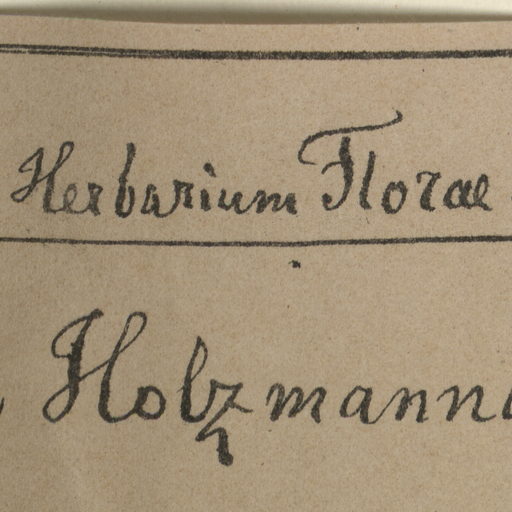 Herbarium Florae
Holzmann